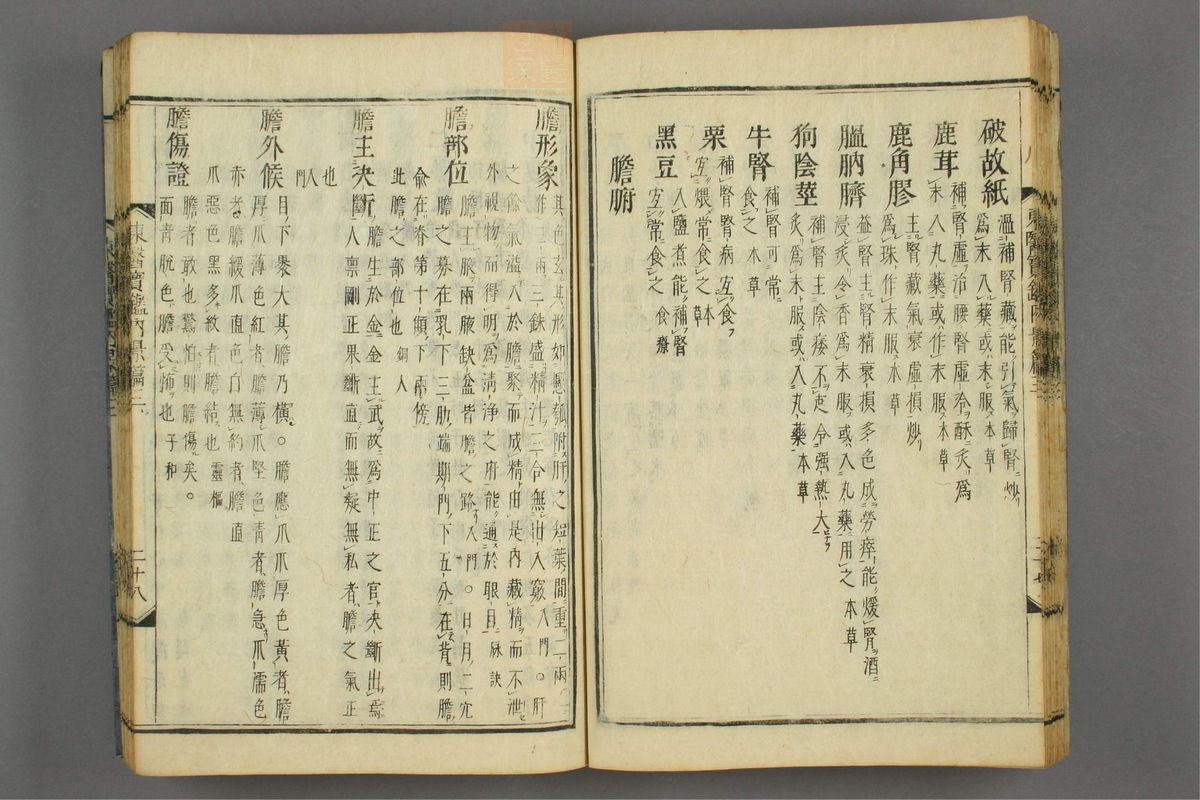 破故紙 溫補腎藏能引氣歸腎炒
爲末入藥或末服 本草
鹿茸 補腎虛治腰腎虛冷酥炙爲
末入丸藥或作末服 本草
鹿角膠 主腎藏氣衰虛損炒
爲珠作末服 本草
膃肭臍 益腎主腎精衰損多色成勞瘁能煖腎酒
浸炙令香爲末服或入丸藥用之 本草
狗陰莖 補腎主陰痿不起令强熱大
炙爲末服或入丸藥 本草
牛腎 補腎可常
食之 本草
栗 補腎腎病宜食
宜煨常食之 本草
黑豆 入鹽煮能補腎
宜常食之 食療
膽腑
東醫寶鑑內景篇三
膽形象 其色玄其形如懸瓠附肝之短葉間重二兩
作三兩三銖盛精汁三合無出入竅 入門 ○肝
之餘氣溢入於膽聚而成精由是內藏精而不泄
外視物而得明爲清淨之府能通於眼目 脉訣
膽部位 膽主腋兩腋缺盆皆膽之路 入門 ○日月二穴
膽之募在乳下三肋端期門下五分在背則膽
俞在脊第十顀下兩傍
此膽之部位也 銅人
膽主決斷 膽生於金金主武故爲中正之官決斷出焉
人禀剛正果斷直而無疑無私者膽之氣正
也 入門
膽外候 目下裹大其膽乃橫○膽應爪爪厚色黃者膽
厚爪薄色紅者膽薄爪堅色靑者膽急爪濡色
赤者膽緩爪直色白無約者膽直
爪惡色黑多紋者膽結也 靈樞
膽傷證 膽者敢也驚怕則膽傷矣○
面靑脫色膽受怖也 子和
東醫寶鑑內景篇三 二十八